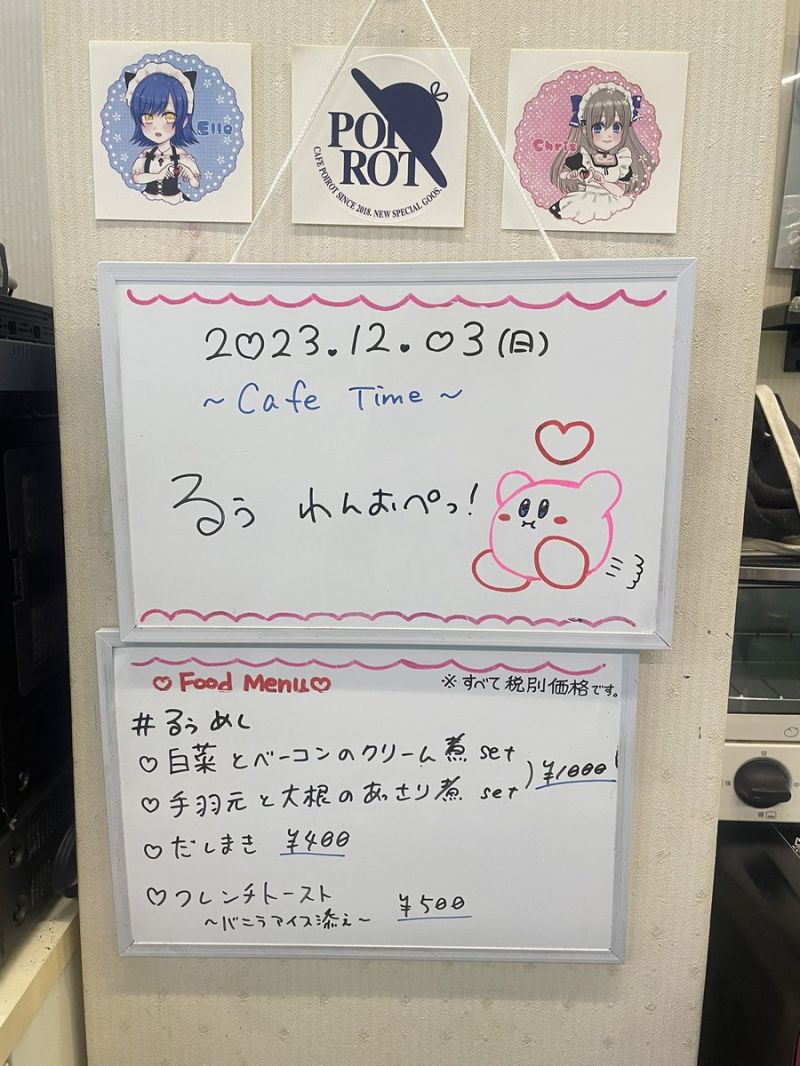 Ella
POIROT
CAFE POIROT SINCE 2018. NEW SPECIAL GOOS.
Chris
2023.12.03(日)
~Cafe Time~
るぅ わんおぺっ!
♡Food Menu♡
※すべて税別価格です。
#るぅめし
♡白菜とベーコンのクリーム煮 set
♡手羽元と大根のあっさり煮 set
¥1000
♡だしまき ¥400
♡フレンチトースト ¥500
~バニラアイス添え~